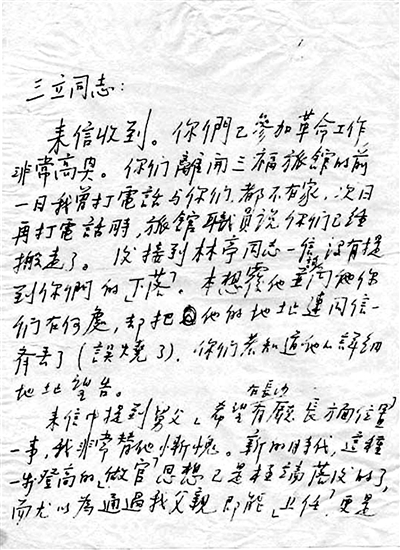 三立同志:
来信收到。你們已參加革命工作
非常高興。你們離開三福旅館的前
一日我曾打電話与你們,都不在家,次日
再打電話時,旅館職員說你們已經
搬走了。後接到林亭同志一信,没有提
到你們的「下落」。本想覆他並詢問他你
們在何處,却把他的地址連同信一
齊丢了(誤燒了)。你們若知道他的詳細
地址望告。
来信中提到舅父「希望在長沙有廳長方面位置」
一事,我非常替他慚愧。新的時代,這種
一步登高的「做官」思想已是極端落後的了,
而尤以為通過我父親即能「上任」,更是